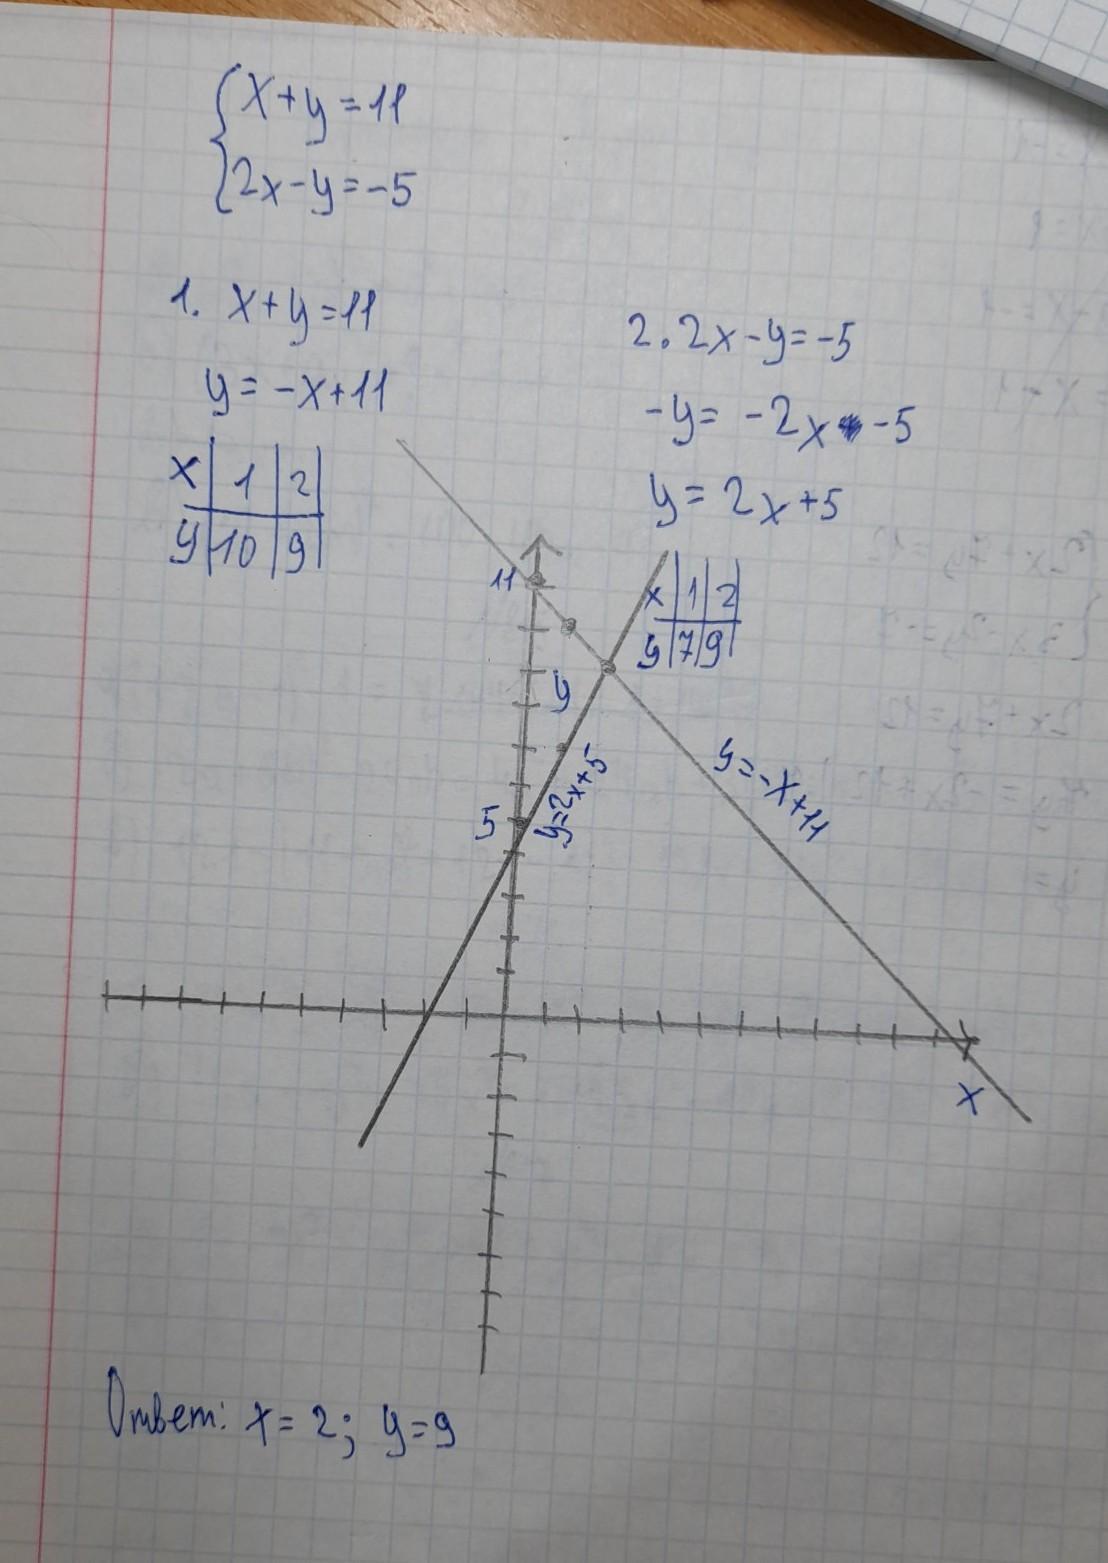 x+y=11
2x-y=-5
1. x+y=11
y= -x+11
x 1 2
y 10 9
2. 2x-y=-5
-y= -2x -5
y= 2x+5
x 1 2
y 7 9
11
y
y=2x+5
5
y=-x+11
x
Ответ: x=2; y=9